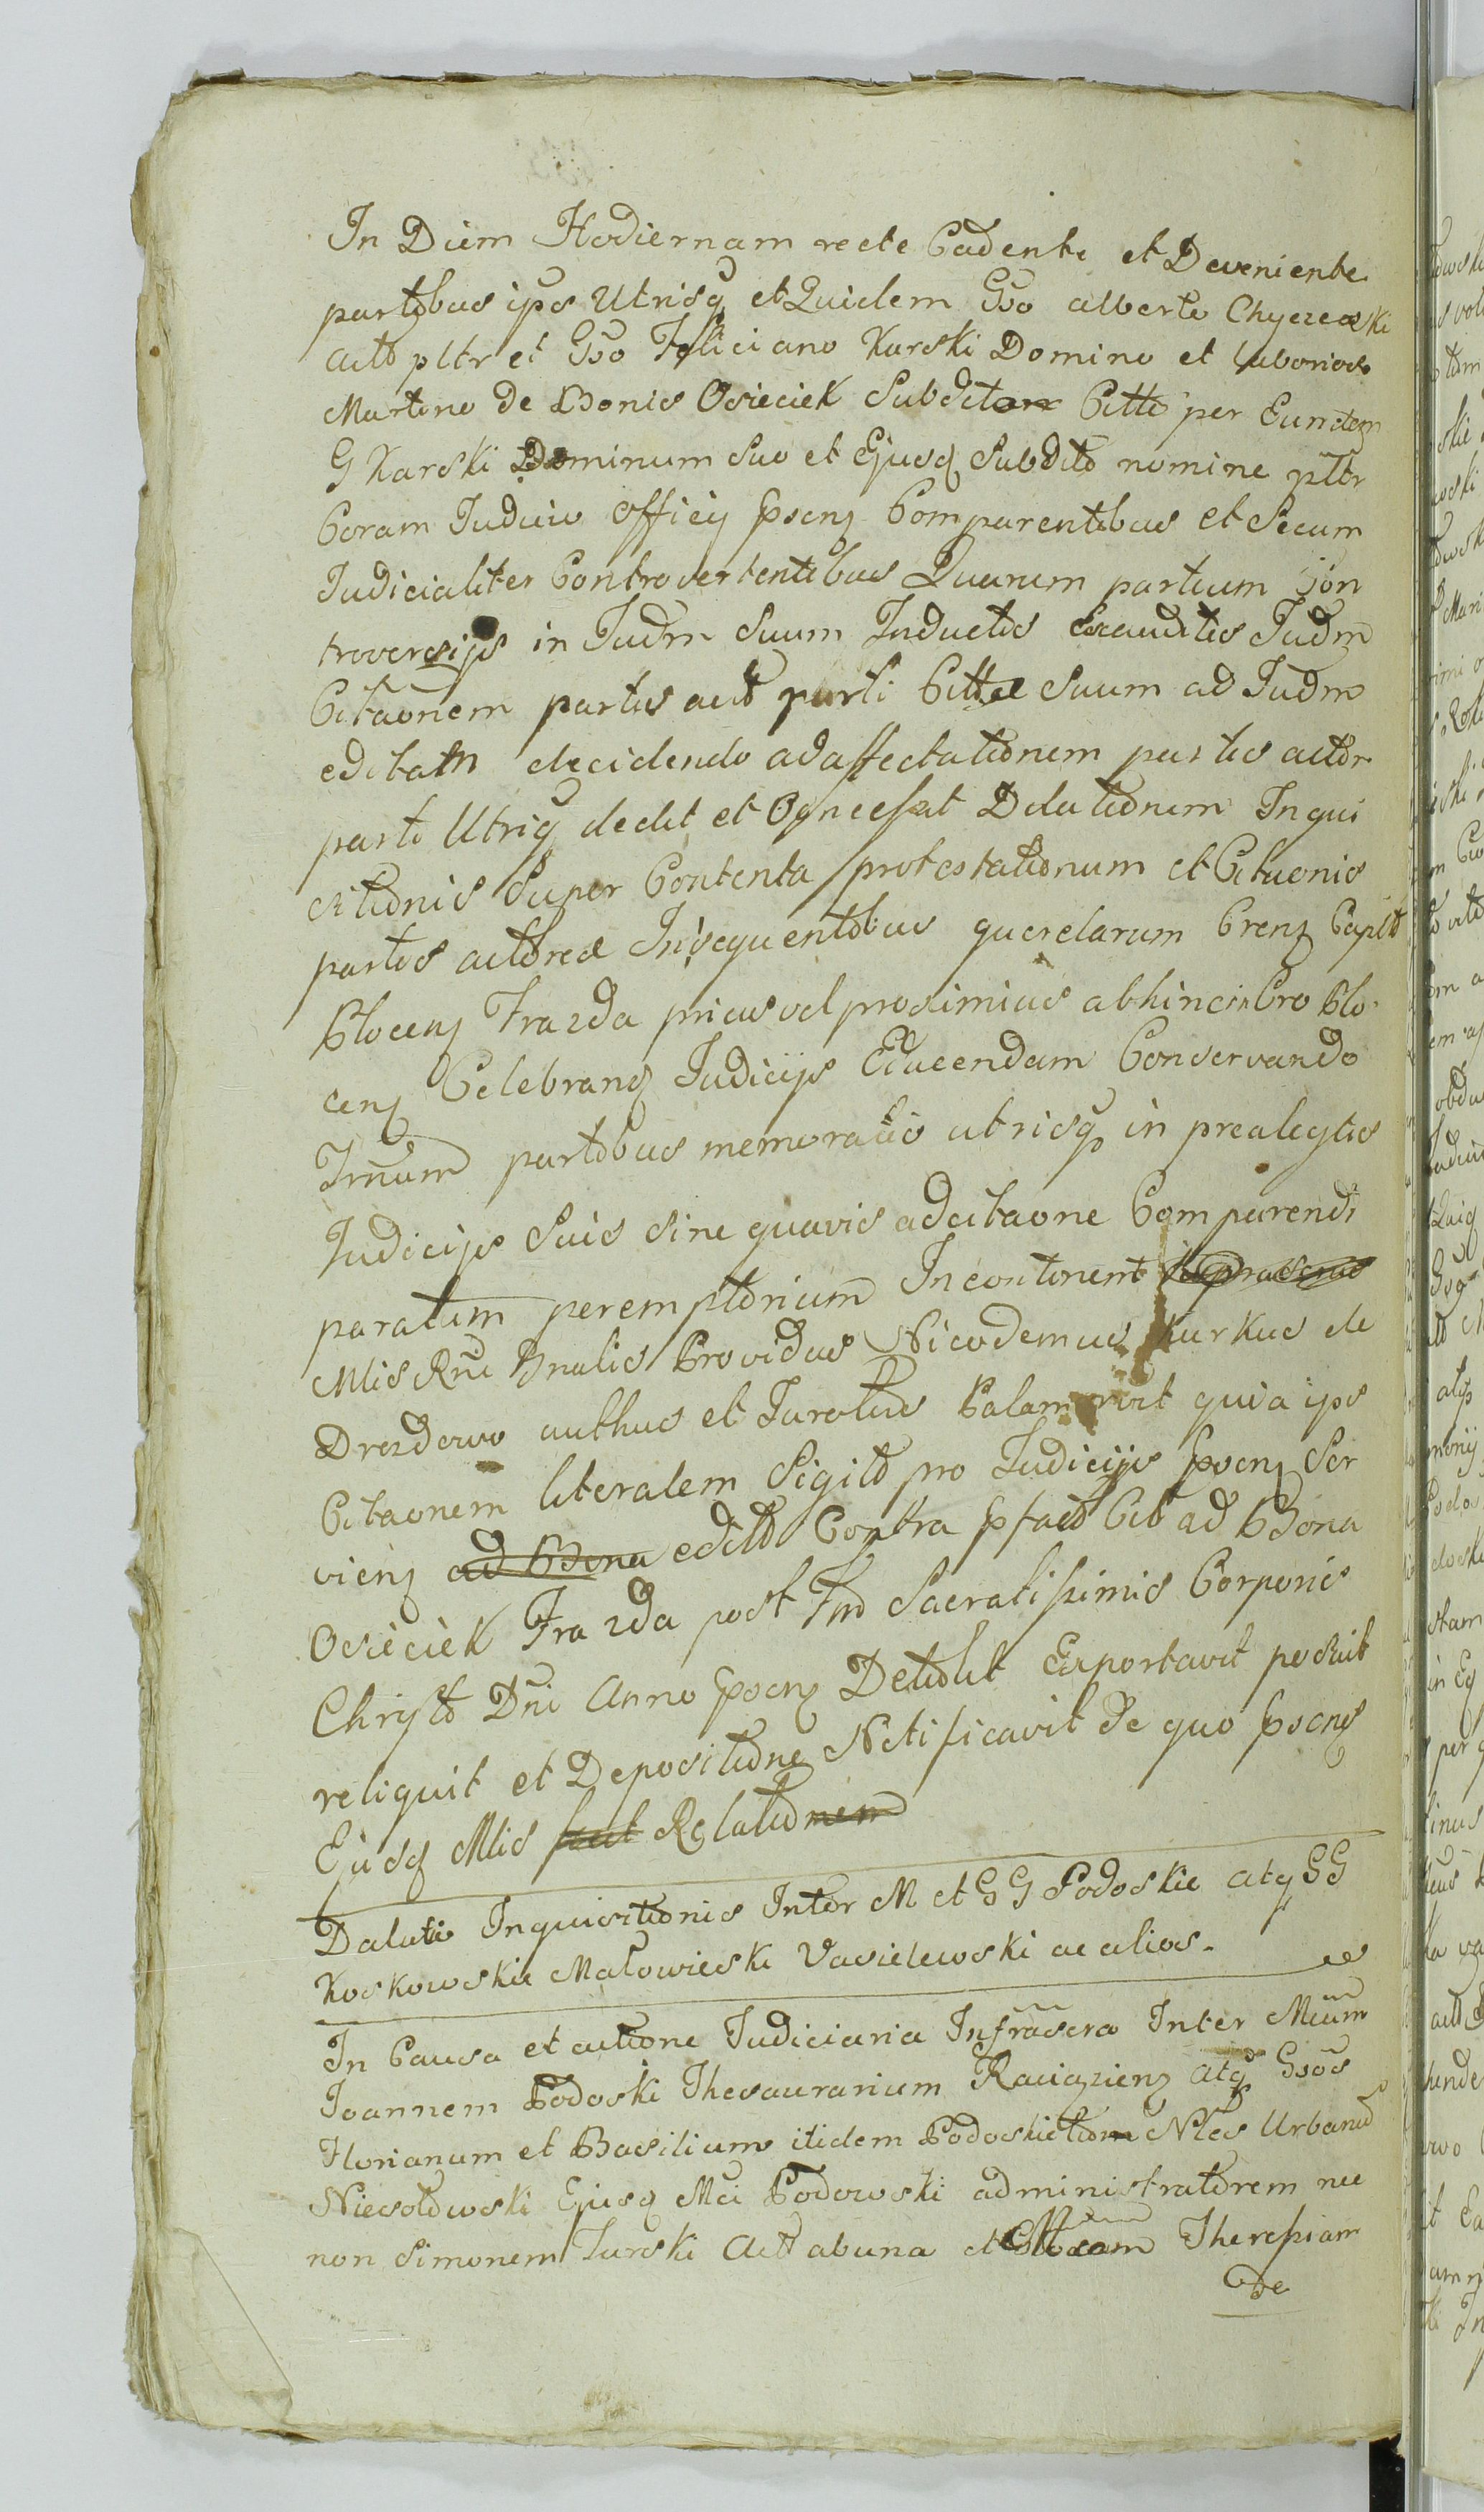 In Diem Hodiernam recte Cadente et Deveniente
partibus ipis Utrisq et Quidem Gso Alberto Chyczewski
act pltr et Gso Feliciano Karski Domino et laborioso
Martino de Bonis Osieciek Subdito Citto per Eundem
G Karski Dominum Suo et Ejusq Subditi nomine pltr
Coram Judicio Officij psenz Comparentibus et Secum
Judicialiter Controvertentibus Quarum partium Con
troversijs in Judm Suum Inductis Exauditis Judm
Citaonem partis act parti Cittae Suum ad Judm
editam decidendo ad affectationem partis actor
parti Utriq dedit et Ognessit Dilationem Inqui
sitionis Super Contenta protestationum et Citaonis
partis actoreae Insequentibus querelarum Crenz Caplt
Plocenz Fra 2da prius vel proximius abhinc in Cro Plo
cenz Celebranz Judicijs Educendam Conservando
Trnum partibus memoratis utrisq in prealegtis
Judicijs Suis Sine quavis adcitaone Comparendi
paratum peremptorium Incontinent
Mlis Rni Gnalis Providus Nicodemus Kurkus de
Drozdowo authus et Juratus Palam rvit quia ips
Citaonem literalem Sigilt pro Judicijs psenz Ser
vienz ad Bona edilt Contra pfact Cit ad Bona
Osieciek Fra 2da post Fm Sacratissimis Corporis
Christi Dni Anno psenz Detulit Exportavit posuit
reliquit et Depositione Notificavit de quo psenz
Ejusq Mlis fecit Relationem
Dalatio Inquisitionis Inter M et GG Podoskie atq GG
Koskowskie Małowieski Vasilewski ac alios.
In Causa et actione Judiciaria Infrascra Inter Mcum
Joannem Podoski Thesaurarium Raciązienz atq Gsos
Florianum et Basilium itidem Podoskie Nles Urbanu
Niesołowski Ejusq Mci Podowski administratorem nec
non Simonem Turski Act ab una et Mcam Theressiam
De